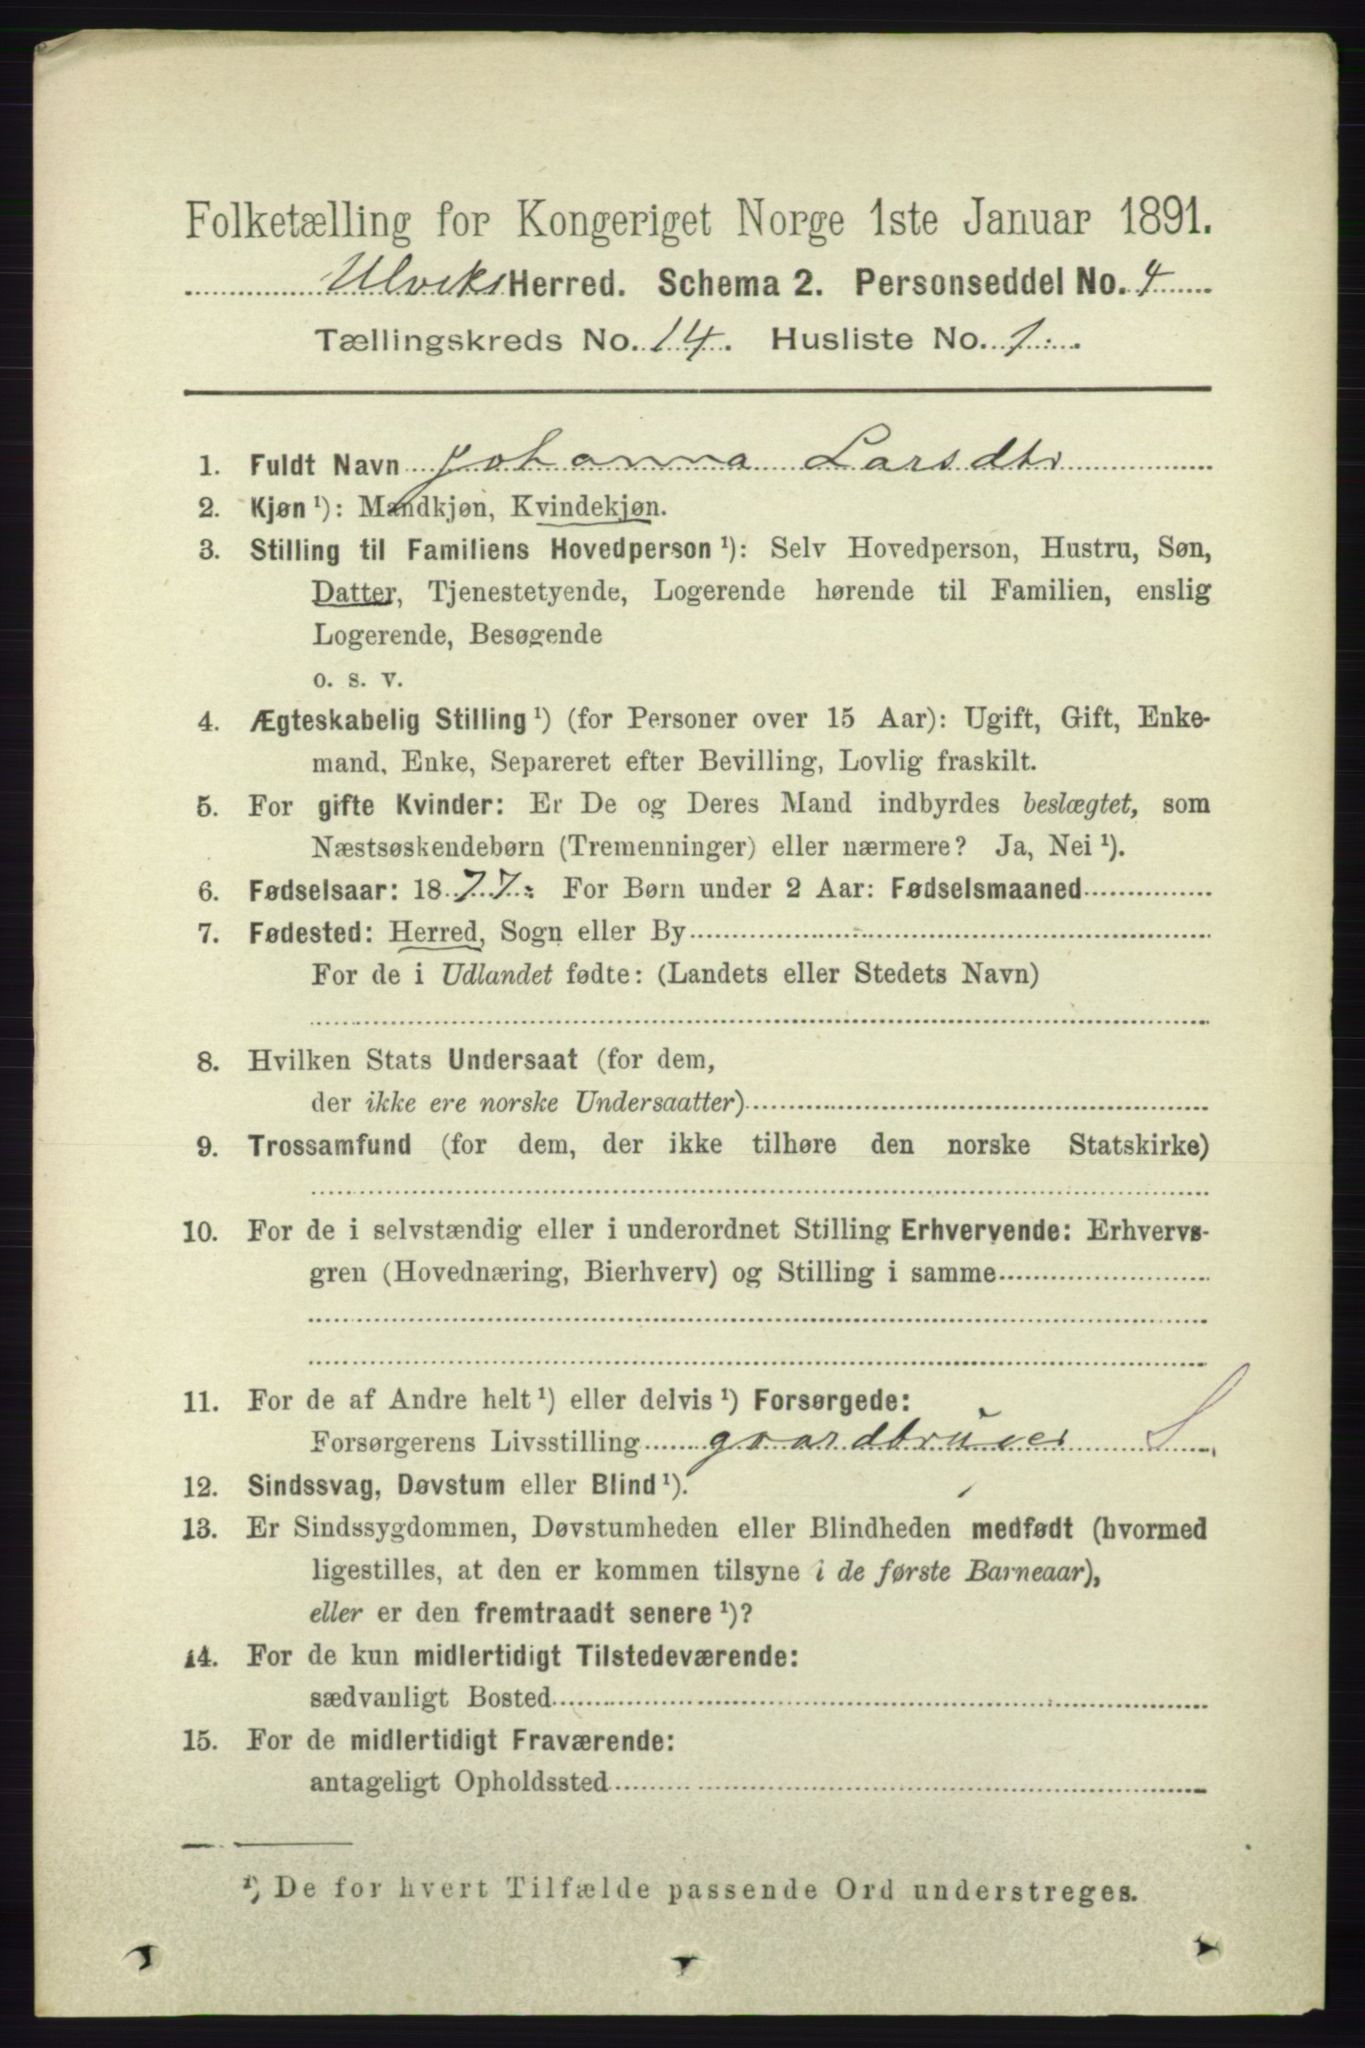 Folketælling for Kongeriget Norge 1ste Januar 1891.
Ulviks Herred. Schema 2. Personseddel No. 4
Tællingskreds No. 14. Husliste No. 1.
1. Fuldt Navn Johanna Larsdtr
2. Kjøn ¹): Mandkjøn, Kvindekjøn.
3. Stilling til Familiens Hovedperson ¹): Selv Hovedperson, Hustru, Søn,
Datter, Tjenestetyende, Logerende hørende til Familien, enslig
Logerende, Besøgende
o. s. v.
4. Ægteskabelig Stilling ¹) (for Personer over 15 Aar): Ugift, Gift, Enke-
mand, Enke, Separeret efter Bevilling, Lovlig fraskilt.
5. For gifte Kvinder: Er De og Deres Mand indbyrdes beslægtet, som
Næstsøskendebørn (Tremenninger) eller nærmere? Ja, Nei ¹).
6. Fødselsaar: 1877. For Børn under 2 Aar: Fødselsmaaned
7. Fødested: Herred, Sogn eller By
For de i Udlandet fødte: (Landets eller Stedets Navn)
8. Hvilken Stats Undersaat (for dem,
der ikke ere norske Undersaatter)
9. Trossamfund (for dem, der ikke tilhøre den norske Statskirke)
10. For de i selvstændig eller i underordnet Stilling Erhvervende: Erhvervs-
gren (Hovednæring, Bierhverv) og Stilling i samme
11. For de af Andre helt ¹) eller delvis ¹) Forsørgede:
Forsørgerens Livsstilling gaardbruger S
12. Sindssvag, Døvstum eller Blind ¹).
13. Er Sindssygdommen, Døvstumheden eller Blindheden medfødt (hvormed
ligestilles, at den er kommen tilsyne i de første Barneaar),
eller er den fremtraadt senere ¹)?
14. For de kun midlertidigt Tilstedeværende:
sædvanligt Bosted
15. For de midlertidigt Fraværende:
antageligt Opholdssted
¹) De for hvert Tilfælde passende Ord understreges.